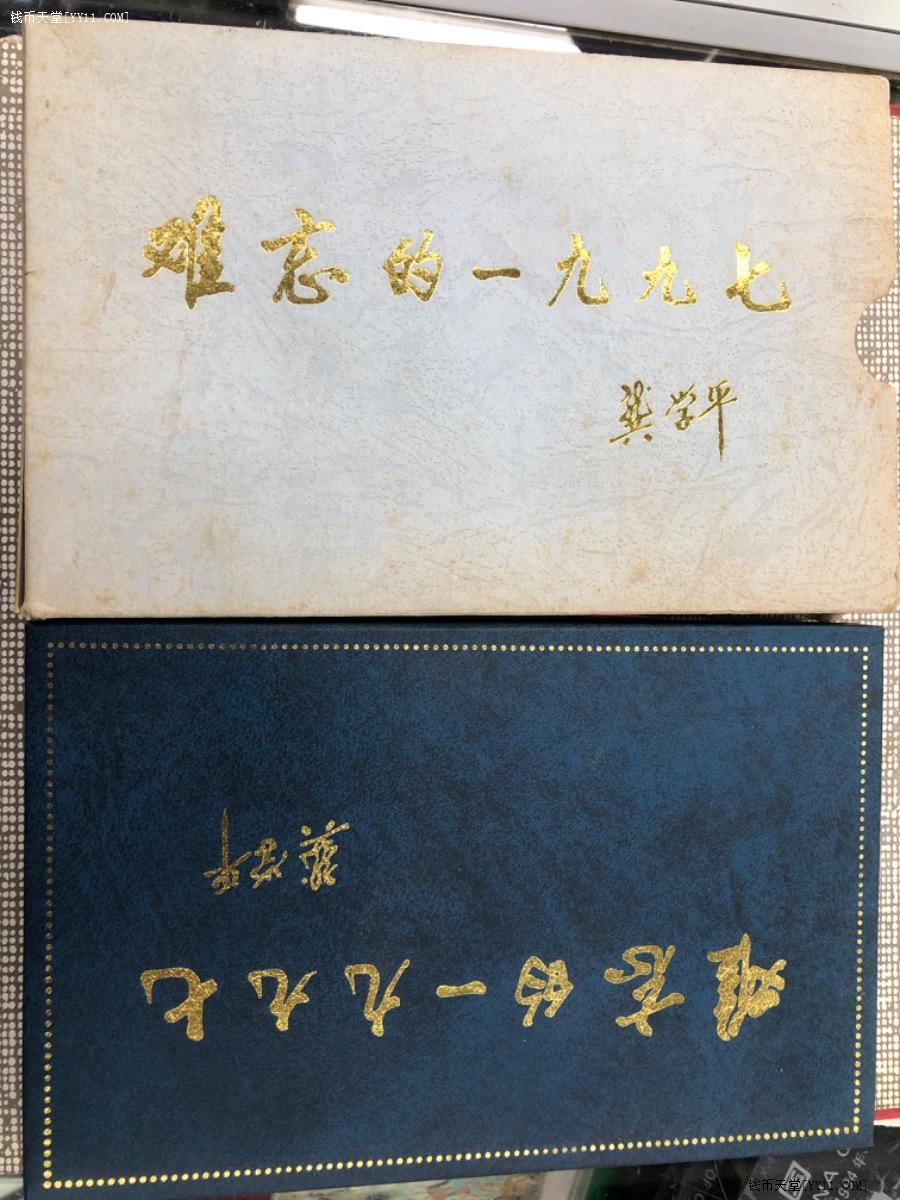 钱币天堂[YY11.COM]
难忘的一九九七
龚学平
难忘的一九九七
龚学平
4年
钱币天堂[YY11.COM]